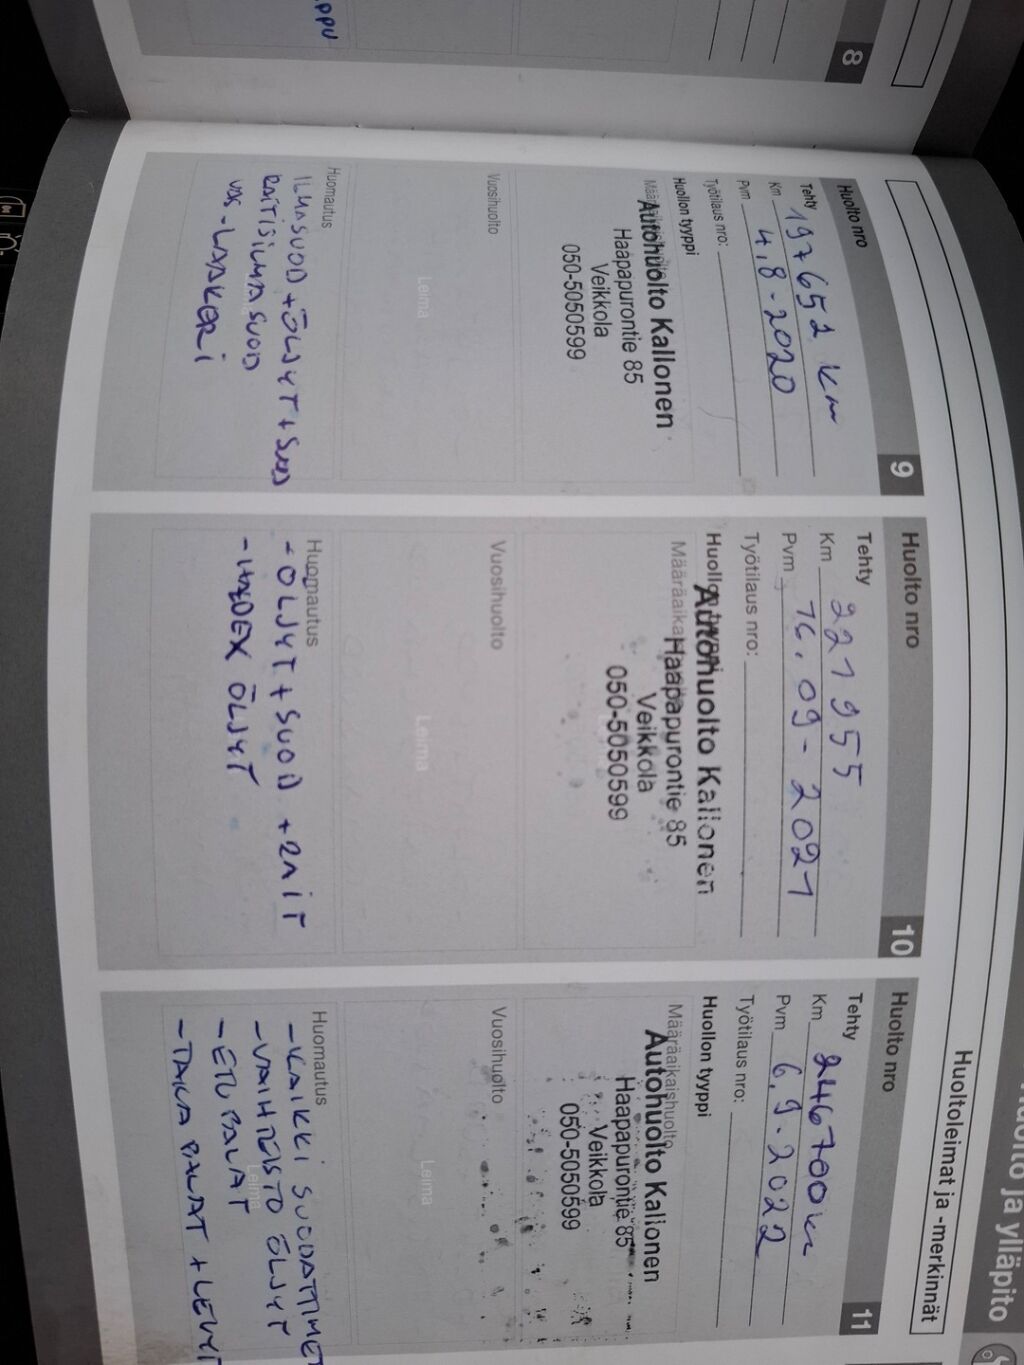 Huolto ja ylläpito
Huoltoleimat ja -merkinnät
8
Huolto nro 9
Tehty
Km 197652 km
Pvm 4.8-2020
Työtilaus nro:
Huollon tyyppi
Autohuolto Kallonen
Haapapurontie 85
Veikkola
050-5050599
Vuosihuolto
Leima
Huomautus
ILMASUOD + ÖLJYT + SUOD
RAITISILMASUOD
- LAAKERI
Huolto nro 10
Tehty
Km 221955
Pvm 16.09-2021
Työtilaus nro:
Huollon tyyppi
Autohuolto Kallonen
Haapapurontie 85
Veikkola
050-5050599
Vuosihuolto
Leima
Huomautus
- ÖLJYT + SUOD
- HALDEX ÖLJYT
Huolto nro 11
Tehty
Km 246700 km
Pvm 6.9-2022
Työtilaus nro:
Huollon tyyppi
Määräaikaishuolto
Autohuolto Kallonen
Haapapurontie 85
Veikkola
050-5050599
Vuosihuolto
Leima
Huomautus
- KAIKKI SUODATTIMET
- VAIHTEISTO ÖLJYT
- ETUPALAT
Leima
- TAKAPALAT + LEVYT